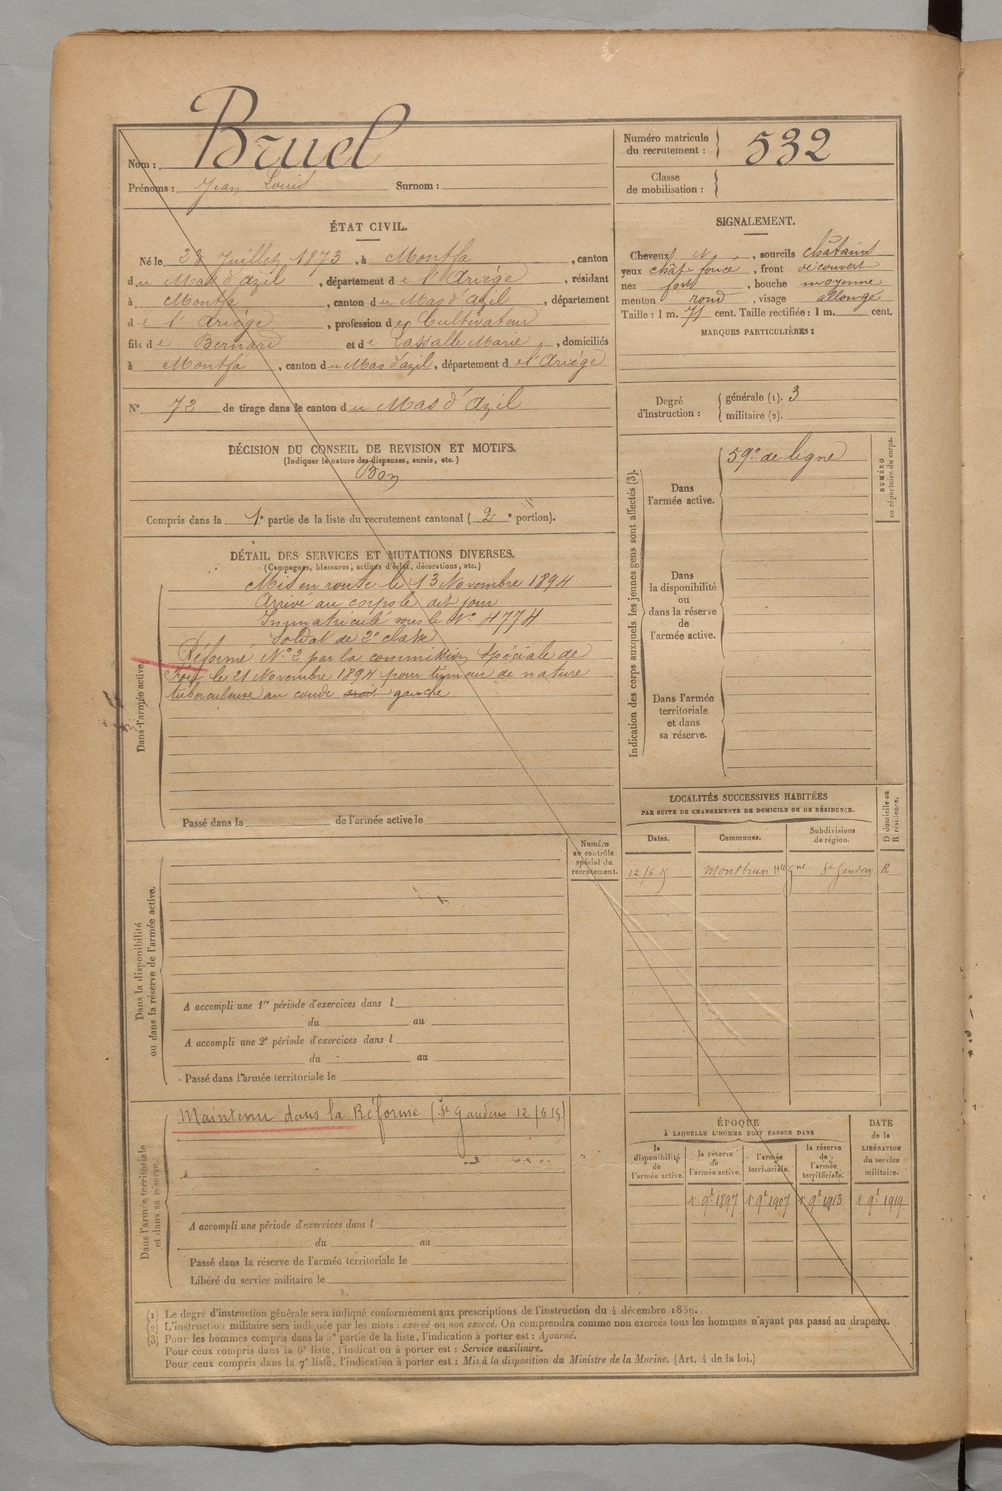 Nom : Bruel
Prénoms : Jean Louis Surnom :
Numéro matricule du recrutement : 532
Classe de mobilisation :
ÉTAT CIVIL.
Né le Juillet 1873, à Montfa, canton
du Mas d'azil, département de l'Ariége, résidant
à Montfa, canton du Mas d'azil, département
de l'Ariége, profession de Cultivateur
fils de Bernard et de Lassalle Marie, domiciliés
à Montfa, canton du Mas d'azil, département de l'Ariége
N° 72 de tirage dans le canton du Mas d'Azil
DÉCISION DU CONSEIL DE REVISION ET MOTIFS.
(Indiquer la nature des dispenses, sursis, etc.)
Bon
Compris dans la 1e partie de la liste du recrutement cantonal (2e portion).
DÉTAIL DES SERVICES ET MUTATIONS DIVERSES.
(Campagnes, blessures, actions d'éclat, décorations, etc.)
Dans l'armée active.
Mis en route le 13 Novembre 1894
Arrivé au corps le dit jour
Immatriculé sous le N° 4774
Soldat de 2e classe
Réformé N° 2 par la commission spéciale de
Foix le 21 Novembre 1894 pour tumeur de nature
tuberculeuse au coude droit gauche
Passé dans la de l'armée active le
SIGNALEMENT.
Cheveux et, sourcils châtains
yeux chât. foncé, front découvert
nez fort, bouche moyenne
menton rond, visage allongé
Taille : 1 m. 71 cent. Taille rectifiée : 1 m. cent.
MARQUES PARTICULIÈRES :
Degré d'instruction : générale (1). 3
militaire (2).
Indication des corps auxquels les jeunes gens sont affectés (3).
NUMÉRO au répertoire du corps.
Dans l'armée active. 59e de ligne
Dans la disponibilité ou dans la réserve de l'armée active.
Dans l'armée territoriale et dans sa réserve.
LOCALITÉS SUCCESSIVES HABITÉES
PAR SUITE DE CHANGEMENTS DE DOMICILE OU DE RÉSIDENCE.
Dates. Communes. Subdivisions de région. D domicile ou R résidence.
12/6 15 Montbrun Hte Gne St Gaudens R
Numéro au contrôle spécial du recrutement.
Dans la disponibilité ou dans la réserve de l'armée active.
A accompli une 1re période d'exercices dans l
du au
A accompli une 2e période d'exercices dans l
du au
Passé dans l'armée territoriale le
Dans l'armée territoriale et dans sa réserve.
Maintenu dans la Réforme (St Gaudens 12/6 15)
A accompli une période d'exercices dans l
du au
Passé dans la réserve de l'armée territoriale le
Libéré du service militaire le
ÉPOQUE
À LAQUELLE L'HOMME DOIT PASSER DANS
la disponibilité de l'armée active. la réserve de l'armée active. l'armée territoriale. la réserve de l'armée territoriale.
DATE de la LIBÉRATION du service militaire.
1r 9bre 1897 1r 9bre 1907 1r 9bre 1913 1r 9bre 1919
(1) Le degré d'instruction générale sera indiqué conformément aux prescriptions de l'instruction du 4 décembre 1889.
(2) L'instruction militaire sera indiquée par les mots : exercé ou non exercé. On comprendra comme non exercés tous les hommes n'ayant pas passé au drapeau.
(3) Pour les hommes compris dans la 5e partie de la liste, l'indication à porter est : Ajourné.
Pour ceux compris dans la 6e liste, l'indication à porter est : Service auxiliaire.
Pour ceux compris dans la 7e liste, l'indication à porter est : Mis à la disposition du Ministre de la Marine. (Art. 4 de la loi.)